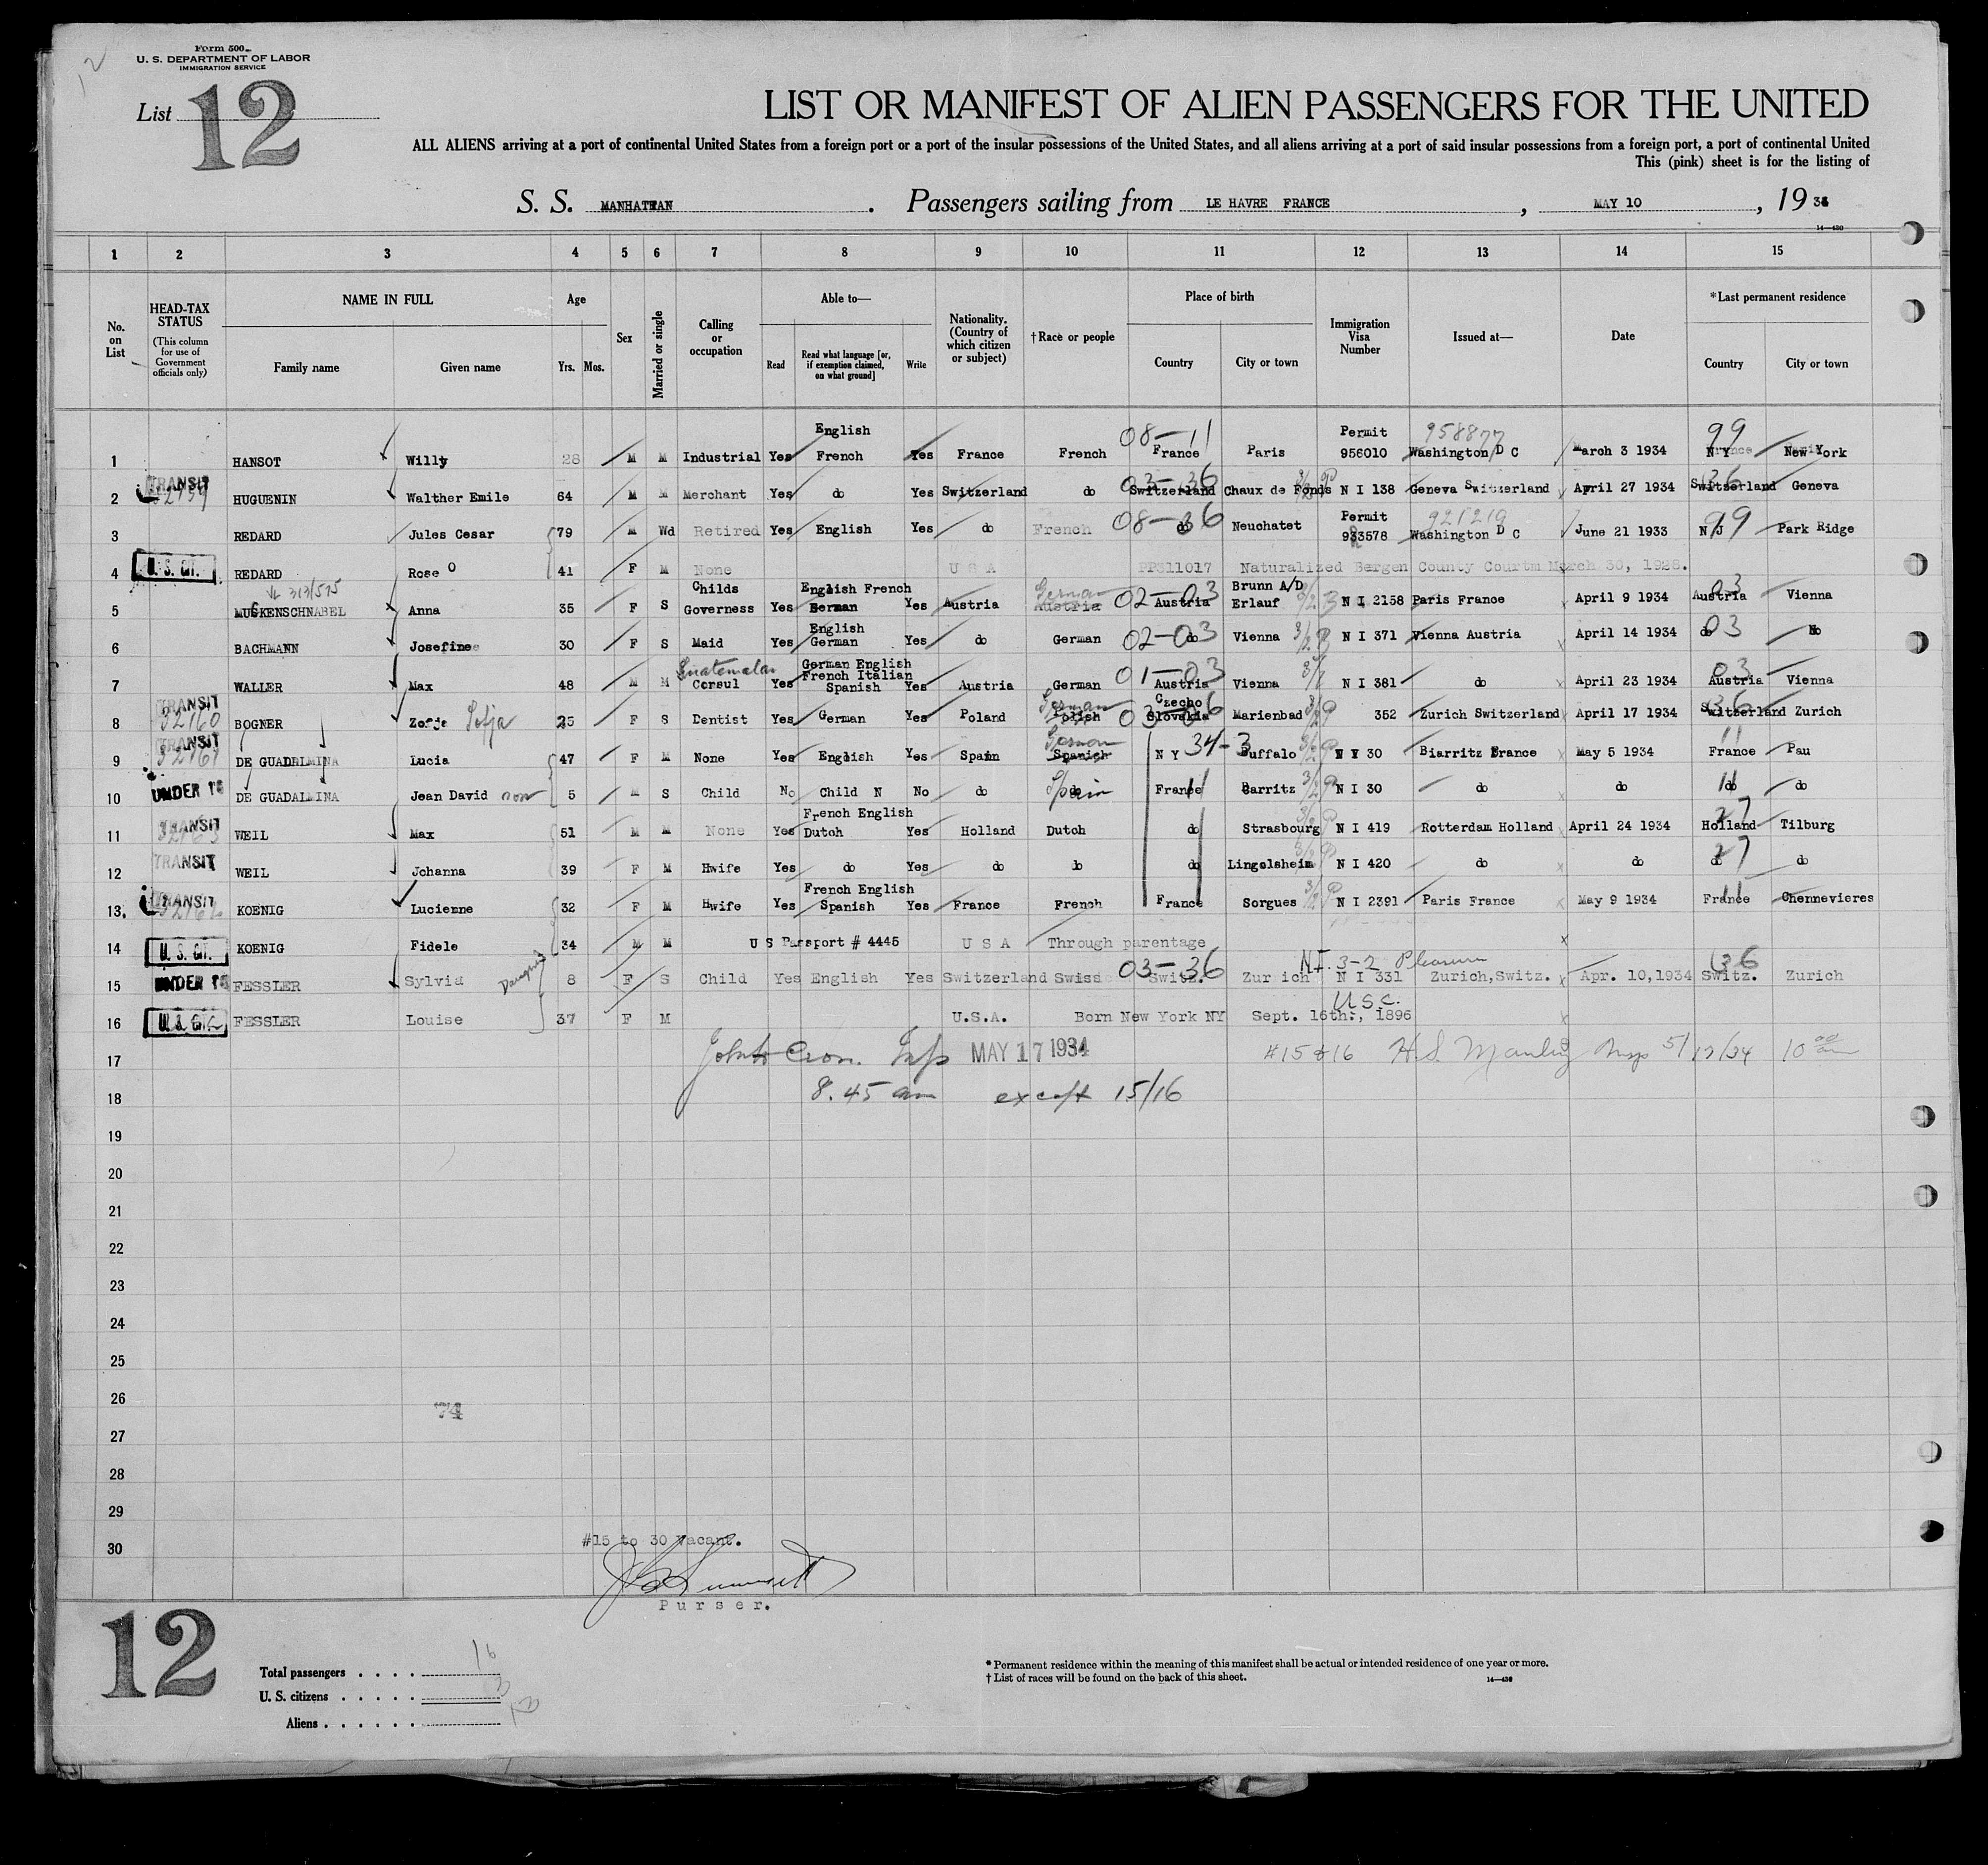 12
Form 500
U. S. DEPARTMENT OF LABOR
IMMIGRATION SERVICE
List 12
LIST OR MANIFEST OF ALIEN PASSENGERS FOR THE UNITED
ALL ALIENS arriving at a port of continental United States from a foreign port or a port of the insular possessions of the United States, and all aliens arriving at a port of said insular possessions from a foreign port, a port of continental United
This (pink) sheet is for the listing of
S. S. MANHATTAN. Passengers sailing from LE HAVRE FRANCE, MAY 10, 1934
14—430
1 2 3 4 5 6 7 8 9 10 11 12 13 14 15
No. on List
HEAD-TAX STATUS (This column for use of Government officials only)
NAME IN FULL Family name Given name
Age Yrs. Mos.
Sex
Married or single
Calling or occupation
Able to— Read Read what language [or, if exemption claimed, on what ground] Write
Nationality. (Country of which citizen or subject)
†Race or people
Place of birth Country City or town
Immigration Visa Number
Issued at—
Date
*Last permanent residence Country City or town
English 08-11 Permit 958877 99
1 HANSOT Willy 28 M M Industrial Yes French Yes France French France Paris 956010 Washington D C March 3 1934 N Y New York
TRANSIT 03-36 3/2 P 36
2 HUGUENIN Walther Emile 64 M M Merchant Yes do Yes Switzerland do Switzerland Chaux de Fonds N I 138 Geneva Switzerland April 27 1934 Switzerland Geneva
08-36 Permit 921219 99
3 REDARD Jules Cesar 79 M Wd Retired Yes English Yes do French do Neuchatet 933578 Washington D C June 21 1933 N J Park Ridge
4 U. S. CIT. REDARD Rose O 41 F M None U S A PPS11017 Naturalized Bergen County Courtm March 30, 1928.
313/575 Childs English French German 02-03 Brunn A/D 03
5 MUCKENSCHNABEL Anna 35 F S Governess Yes German Yes Austria Austria Austria Erlauf N I 2158 Paris France April 9 1934 Austria Vienna
English 02-03 3/2 P 03
6 BACHMANN Josefine 30 F S Maid Yes German Yes do German do Vienna N I 371 Vienna Austria April 14 1934 do do
Guatemalan German English French Italian 01-03 03
7 WALLER Max 48 M M Consul Yes Spanish Yes Austria German Austria Vienna N I 381 do April 23 1934 Austria Vienna
TRANSIT 32160 German Czecho 3/2 P 36
8 BOGNER Zofja 25 F S Dentist Yes German Yes Poland Polish Slovakia Marienbad 352 Zurich Switzerland April 17 1934 Switzerland Zurich
TRANSIT 32161 34-3 3/2 P 11
9 DE GUADALMINA Lucia 47 F M None Yes English Yes Spain Spanish N Y Buffalo N I 30 Biarritz France May 5 1934 France Pau
UNDER 16 Spain 11 3/2 P 11
10 DE GUADALMINA Jean David son 5 M S Child No Child N No do do France Barritz N I 30 do do do do
TRANSIT French English 3/2 P 27
11 WEIL Max 51 M M None Yes Dutch Yes Holland Dutch do Strasbourg N I 419 Rotterdam Holland April 24 1934 Holland Tilburg
TRANSIT 3/2 P 27
12 WEIL Johanna 39 F M Hwife Yes do Yes do do do Lingolsheim N I 420 do do do do
TRANSIT French English 3/2 P 11
13 KOENIG Lucienne 32 F M Hwife Yes Spanish Yes France French France Sorgues N I 2391 Paris France May 9 1934 France Chennevieres
14 U. S. CIT. KOENIG Fidele 34 M M U S Passport # 4445 U S A Through parentage
Daughter 03-36 N.I. 3-2 Pleasure 36
15 UNDER 16 FESSLER Sylvia 8 F S Child Yes English Yes Switzerland Swiss Switz. Zurich N I 331 Zurich, Switz. Apr. 10,1934 Switz. Zurich
U.S.C.
16 U. S. CIT. FESSLER Louise 37 F M U.S.A. Born New York NY Sept. 16th., 1896
17 Insp MAY 17 1934 #15 & 16 H S Insp 5/17/34 10 00 am
18 8.45 am except 15/16
19
20
21
22
23
24
25
26
74
27
28
29
#15 to 30 Vacant.
30
Purser.
12
Total passengers . . . . 16
U. S. citizens . . . . . 3
Aliens . . . . . . 13
* Permanent residence within the meaning of this manifest shall be actual or intended residence of one year or more.
† List of races will be found on the back of this sheet.
14—430